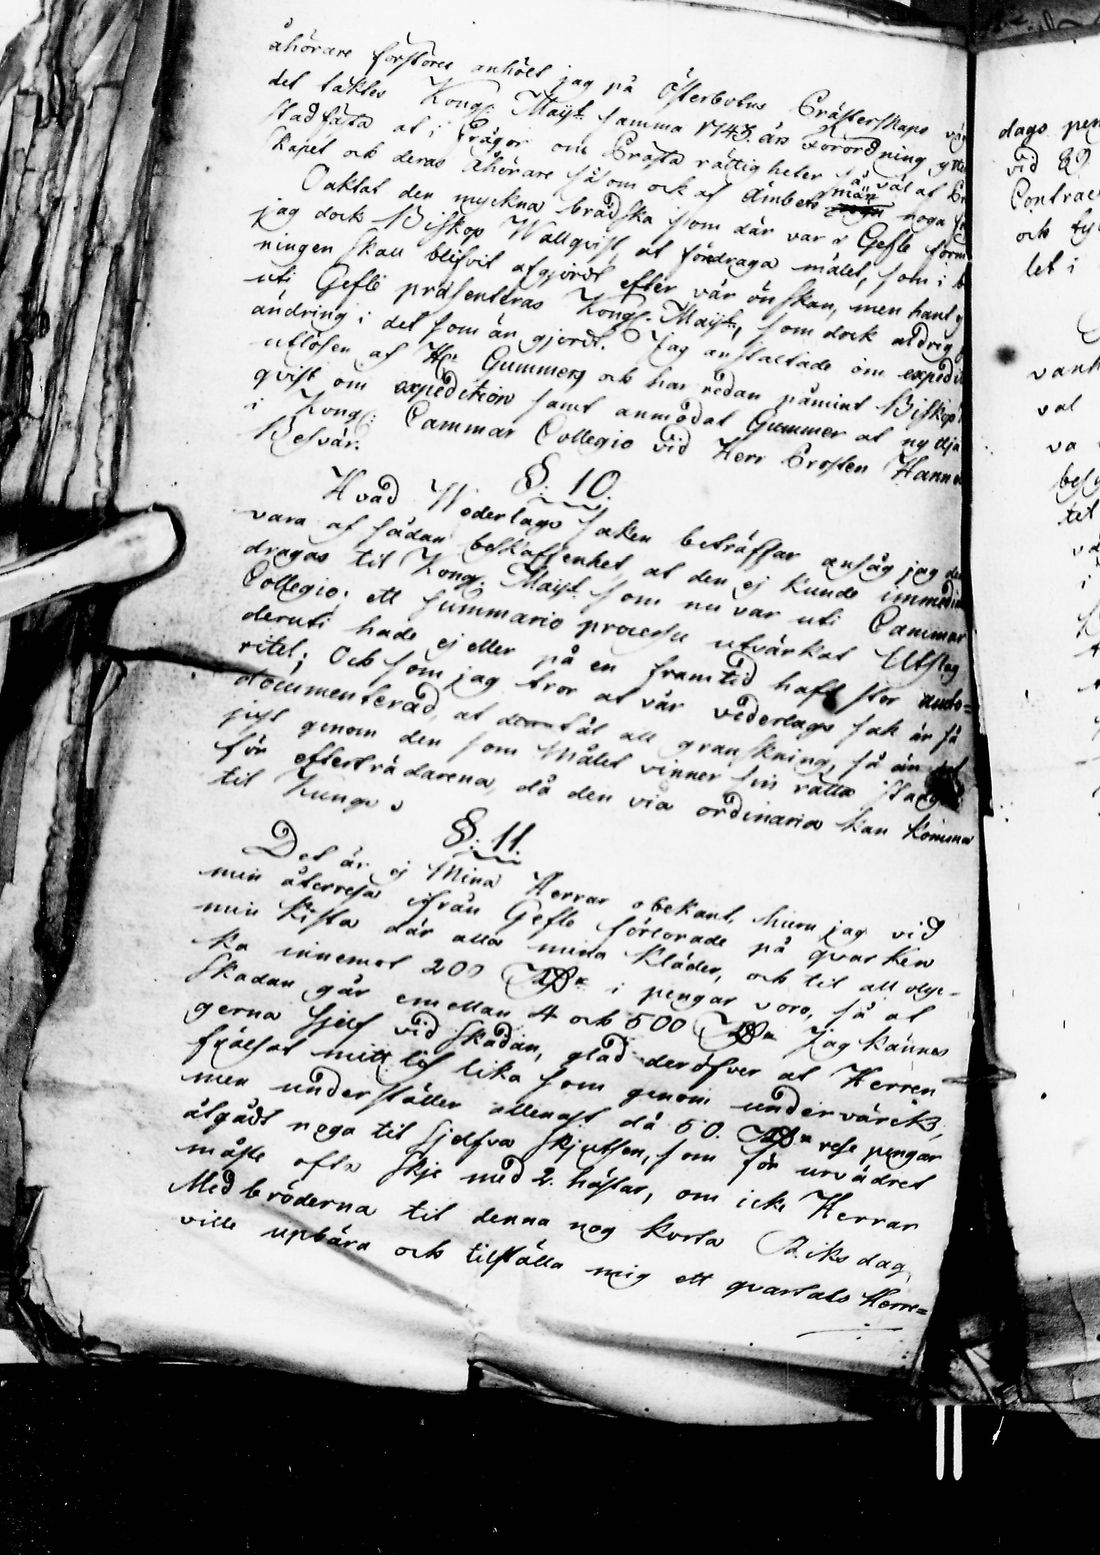 åhörare förstöres anhölt jag på Österbotns Prästerskaps väg
det täktes Kongl. Maijt. samma 1743. års Förordning ytte
stadfästa at i Frågor om Prästa rättigheter så väl af Pr
skapet och deras Åhörare såsom ock af Ämbets män noga
Oaktat den myckna brådska som där var i Gefle
jag dock Biskop Wallqvist, at föredraga målet, som i
ningen skall blifvit afgjordt efter vår önskan, men hant
uti Gefle präsenteras Kongl. Maijt, som dock aldrig
ändring i det som är gjordt. Jag anstaltade om expedit
utlösen af Hr Gummerg och har redan påmint Biskop
qvist om expedition samt anmodat Gummer at nydja
i Kongl. Cammar Collegio vid Herr Prosten Hanne
Besvär.
§. 10.
Hvad Wederlags saken beträffar ansåg jag den
vara af sådan beskaffenhet, at den ej kunde immedia
dragas til Kongl. Maijt. som nu var uti Cammar
Collegio; ett summario processu utvärkat Utslag
deruti hade ej eller på en framtid haft stor aucto=
ritet; Och som jag tror at vår vederlags sak är så
documenterad, at den tål all granskning, så är det
just genom den som Målet vinner sin rätta stadga
för efterträdarena, då den via ordinaria kan komma
til Kungs
§. 11.
Det är ej Mina Herrar obekant, huru jag vid
min återresa ifrån Gefle förlorade på Quarken
min Kista där alla mina Kläder, och til all olye-
ka innemot 200 Rdr i pengar voro, så at
skadan går emellan 4 och 500 Rdr Jag kännes
gerna sjelf vid skadan, glad deröfver at Herren
frälsat mitt lif lika som genom undervärck,
men underställer allenast då 50. Rdr rese pengar
åtgådt noga til sjelfva skjutsen, som för urvädret
måste ofta skje med 2. hästar, om icke Herrar
Medbröderna til denna nog korta Riksdag
ville upbära och tilställa mig ett qvartals Herre=
dags pen
vid
Contrac
och
let i
val
va
tet
i